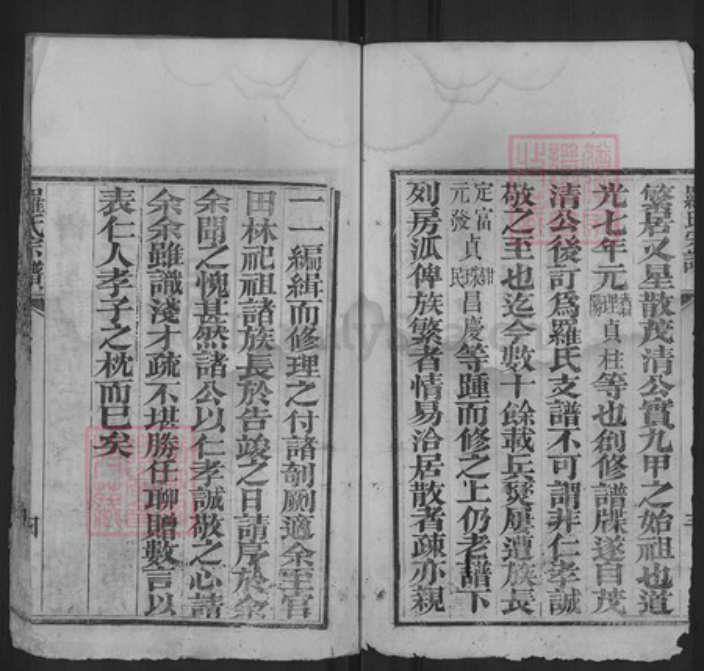 羅氏宗譜
繁居又星散茂清公實九甲之始祖也道
光七年元理貞柱等也創修譜牒遂自茂
清公後訂為羅氏支譜不可謂非仁孝誠
敬之至也迄今數十餘載兵燹屢遭族長
定富貞昌慶等踵而修之上仍老譜下
元發民
列房派俾族繁者情易洽居散者疎亦親
一一編緝而修理之付諸剞劂適余宰官
田林祀祖諸族長於告竣之日請序於余
余聞之愧甚然諸公以仁孝誠敬之心請
余余雖識淺才疏不堪勝任聊贈數言以
表仁人孝子之忱而已矣
羅氏宗譜
四